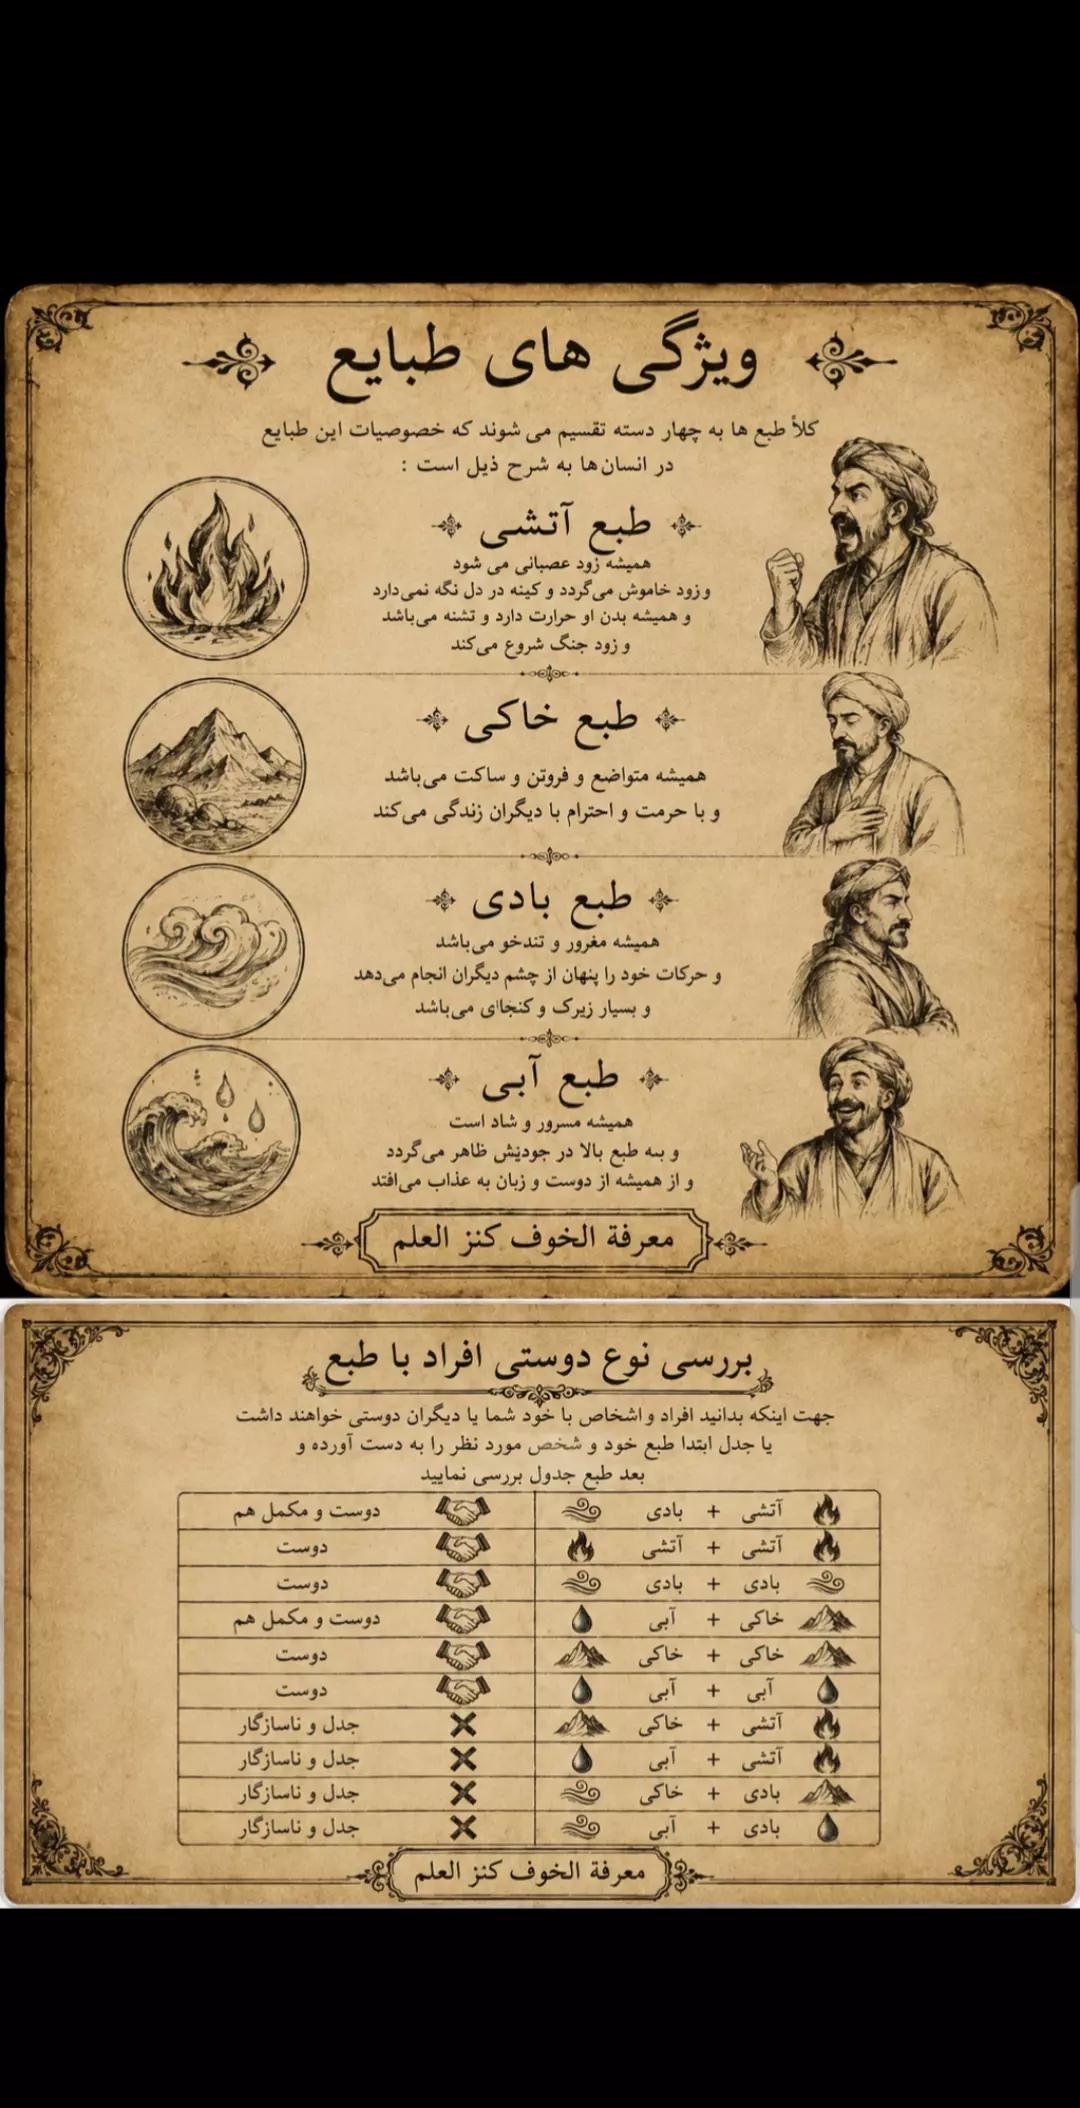 ویژگی های طبایع
کلاً طبع ها به چهار دسته تقسیم می شوند که خصوصیات این طبایع
در انسان‌ها به شرح ذیل است :
طبع آتشی
همیشه زود عصبانی می شود
و زود خاموش می‌گردد و کینه در دل نگه نمی‌دارد
و همیشه بدن او حرارت دارد و تشنه می‌باشد
و زود جنگ شروع می‌کند
طبع خاکی
همیشه متواضع و فروتن و ساکت می‌باشد
و با حرمت و احترام با دیگران زندگی می‌کند
طبع بادی
همیشه مغرور و تندخو می‌باشد
و حرکات خود را پنهان از چشم دیگران انجام می‌دهد
و بسیار زیرک و می‌باشد
طبع آبی
همیشه مسرور و شاد است
و به طبع بالا در ظاهر می‌گردد
و از همیشه از دوست و زبان به عذاب می‌افتد
معرفة الخوف كنز العلم
بررسی نوع دوستی افراد با طبع
جهت اینکه بدانید افراد و اشخاص با خود شما یا دیگران دوستی خواهند داشت
یا جدل ابتدا طبع خود و شخص مورد نظر را به دست آورده و
بعد طبع جدول بررسی نمایید
آتشی + بادی دوست و مکمل هم
آتشی + آتشی دوست
بادی + بادی دوست
خاکی + آبی دوست و مکمل هم
خاکی + خاکی دوست
آبی + آبی دوست
آتشی + خاکی جدل و ناسازگار
آتشی + آبی جدل و ناسازگار
بادی + خاکی جدل و ناسازگار
بادی + آبی جدل و ناسازگار
معرفة الخوف كنز العلم